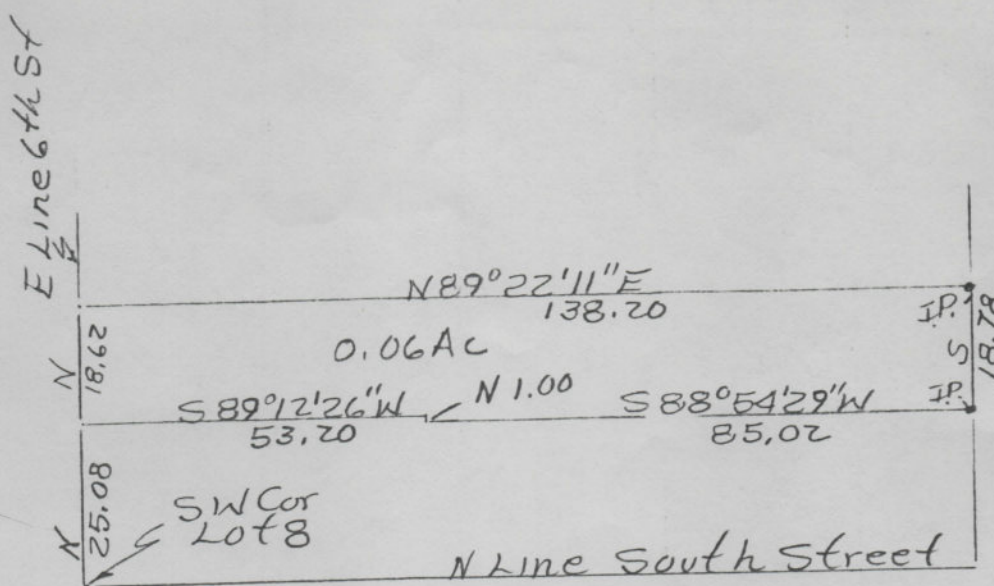 E Line 6th St
N89°22'11"E
138.20
I.P.
S
18.79
N
18.62
0.06Ac
N 1.00
S89°12'26"W
53.20
S88°54'29"W
85.02
I.P.
N
25.08
SW Cor
Lot 8
N Line South Street